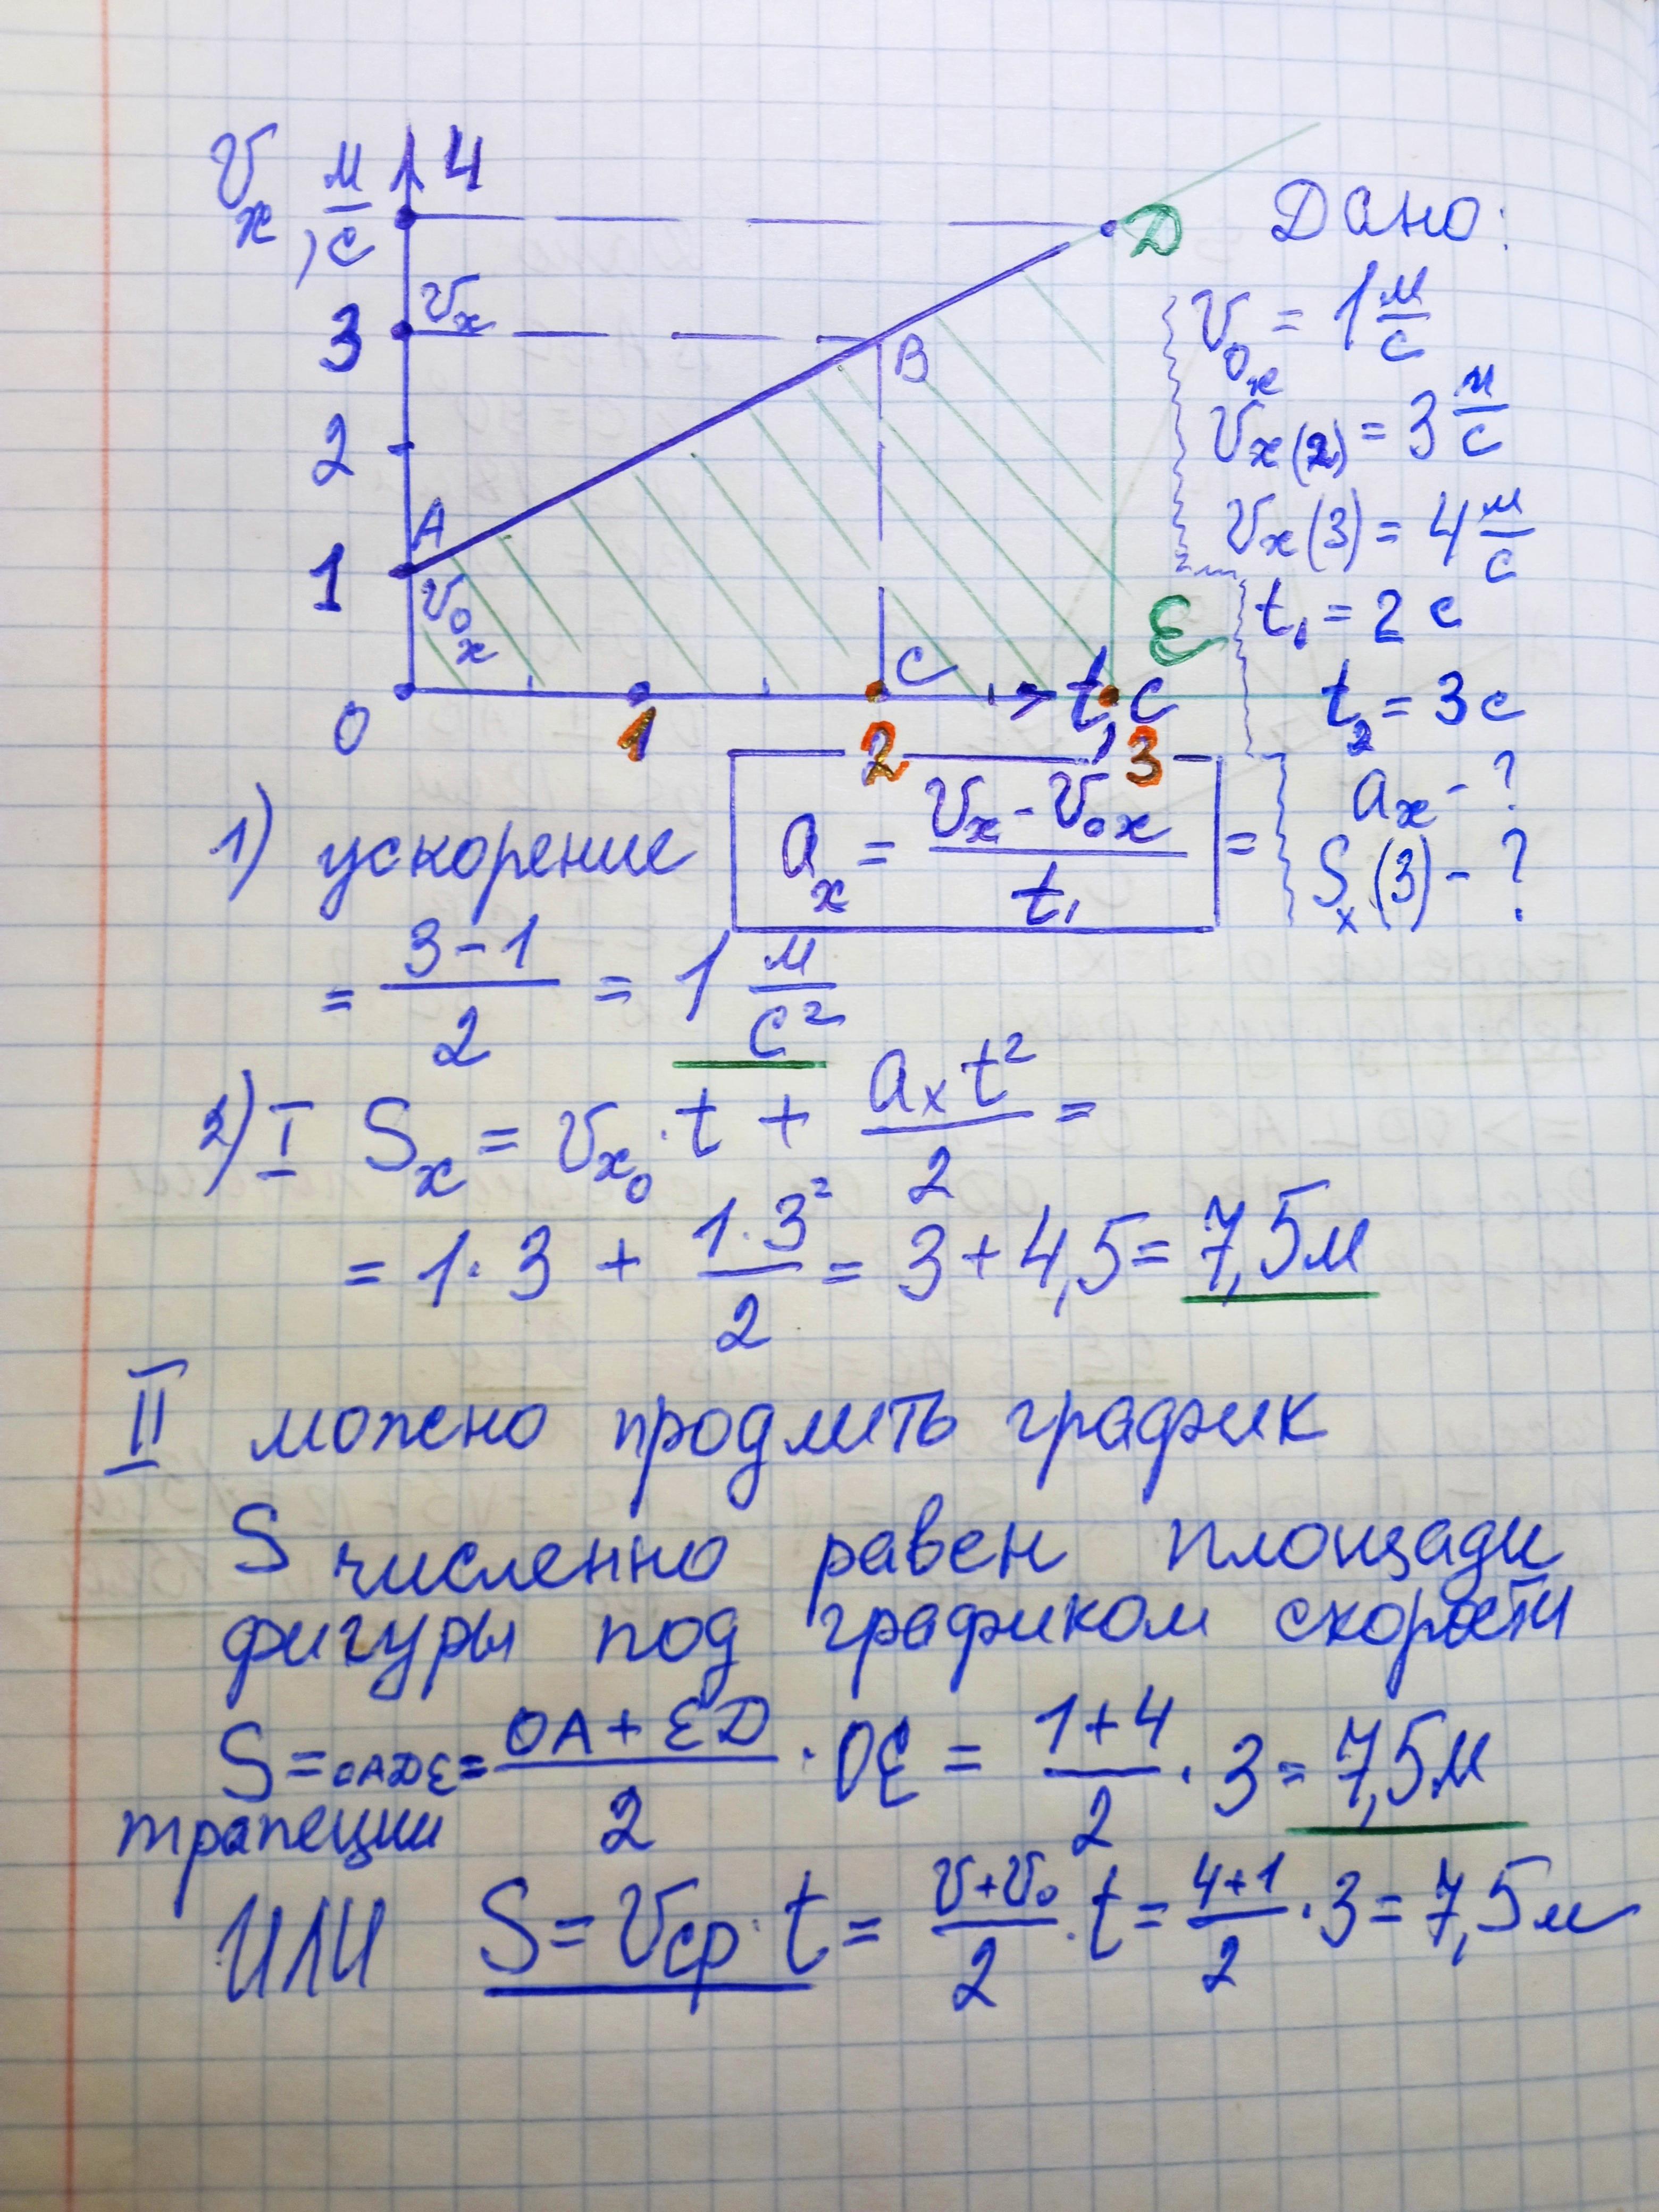 Vx, м/с 4
Vx
3
B
2
A
1
V₀ₓ
0 1 2 3 t,c
C
D
E
Дано:
V₀ₓ = 1 м/с
Vx(2) = 3 м/с
Vx(3) = 4 м/с
t₁ = 2 c
t₂ = 3 c
aₓ - ?
Sₓ(3) - ?
1) ускорение aₓ = (Vₓ - V₀ₓ)/t₁ =
= (3-1)/2 = 1 м/с²
2) I Sₓ = Vₓ₀ · t + aₓt²/2 =
= 1·3 + 1·3²/2 = 3 + 4,5 = 7,5 м
II можно продлить график
S численно равен площади
фигуры под графиком скорости
S = OADE = (OA + ED)/2 · OE = (1+4)/2 · 3 = 7,5 м
трапеции
ИЛИ S = Vср · t = (V+V₀)/2 · t = (4+1)/2 · 3 = 7,5 м